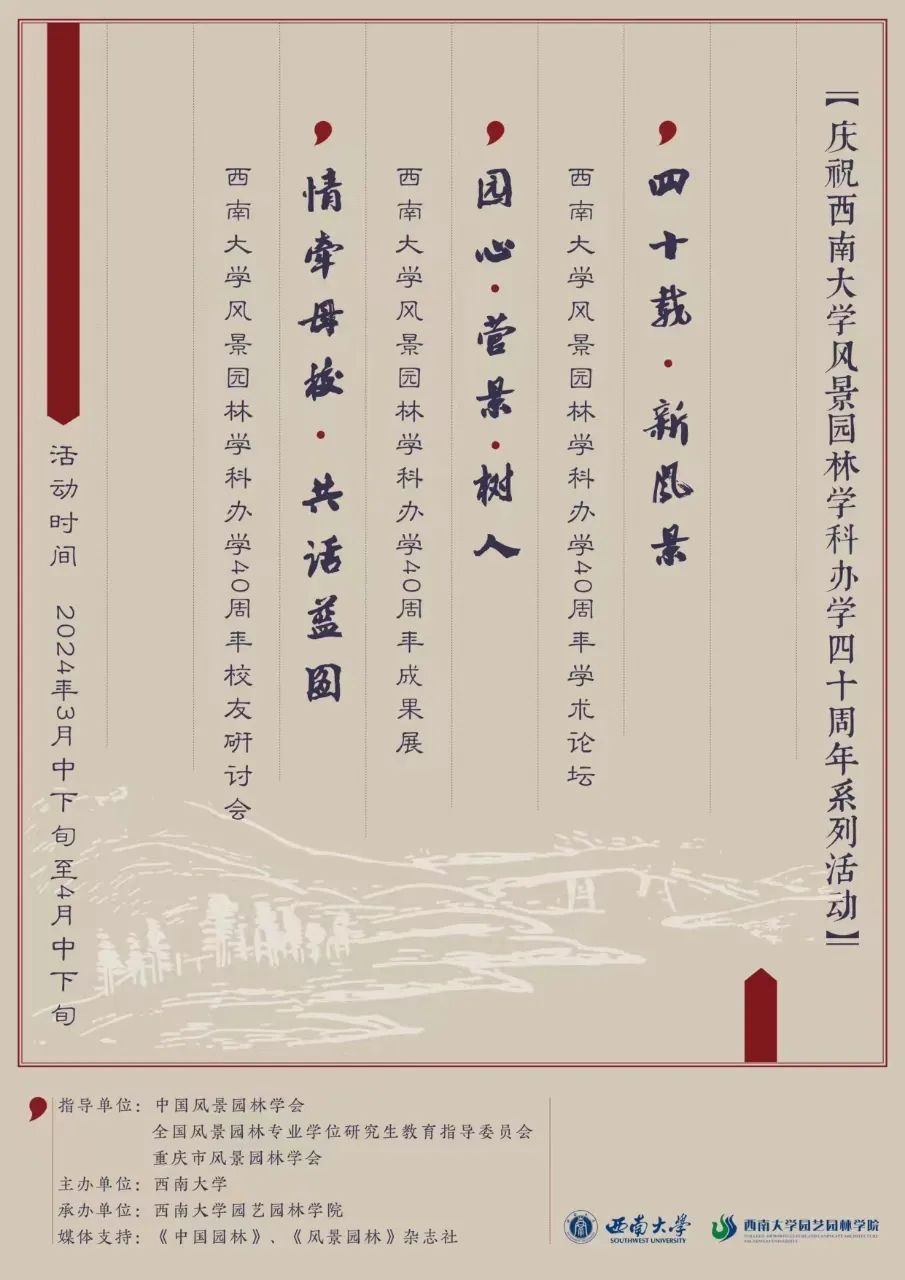 【庆祝西南大学风景园林学科办学四十周年系列活动】
四十载·新风景
西南大学风景园林学科办学40周年学术论坛
园心·营景·树人
西南大学风景园林学科办学40周年成果展
情牵母校·共话蓝图
西南大学风景园林学科办学40周年校友研讨会
活动时间 2024年3月中下旬至4月中下旬
指导单位：中国风景园林学会
全国风景园林专业学位研究生教育指导委员会
重庆市风景园林学会
主办单位：西南大学
承办单位：西南大学园艺园林学院
媒体支持：《中国园林》、《风景园林》杂志社
西南大学
SOUTHWEST UNIVERSITY
西南大学园艺园林学院